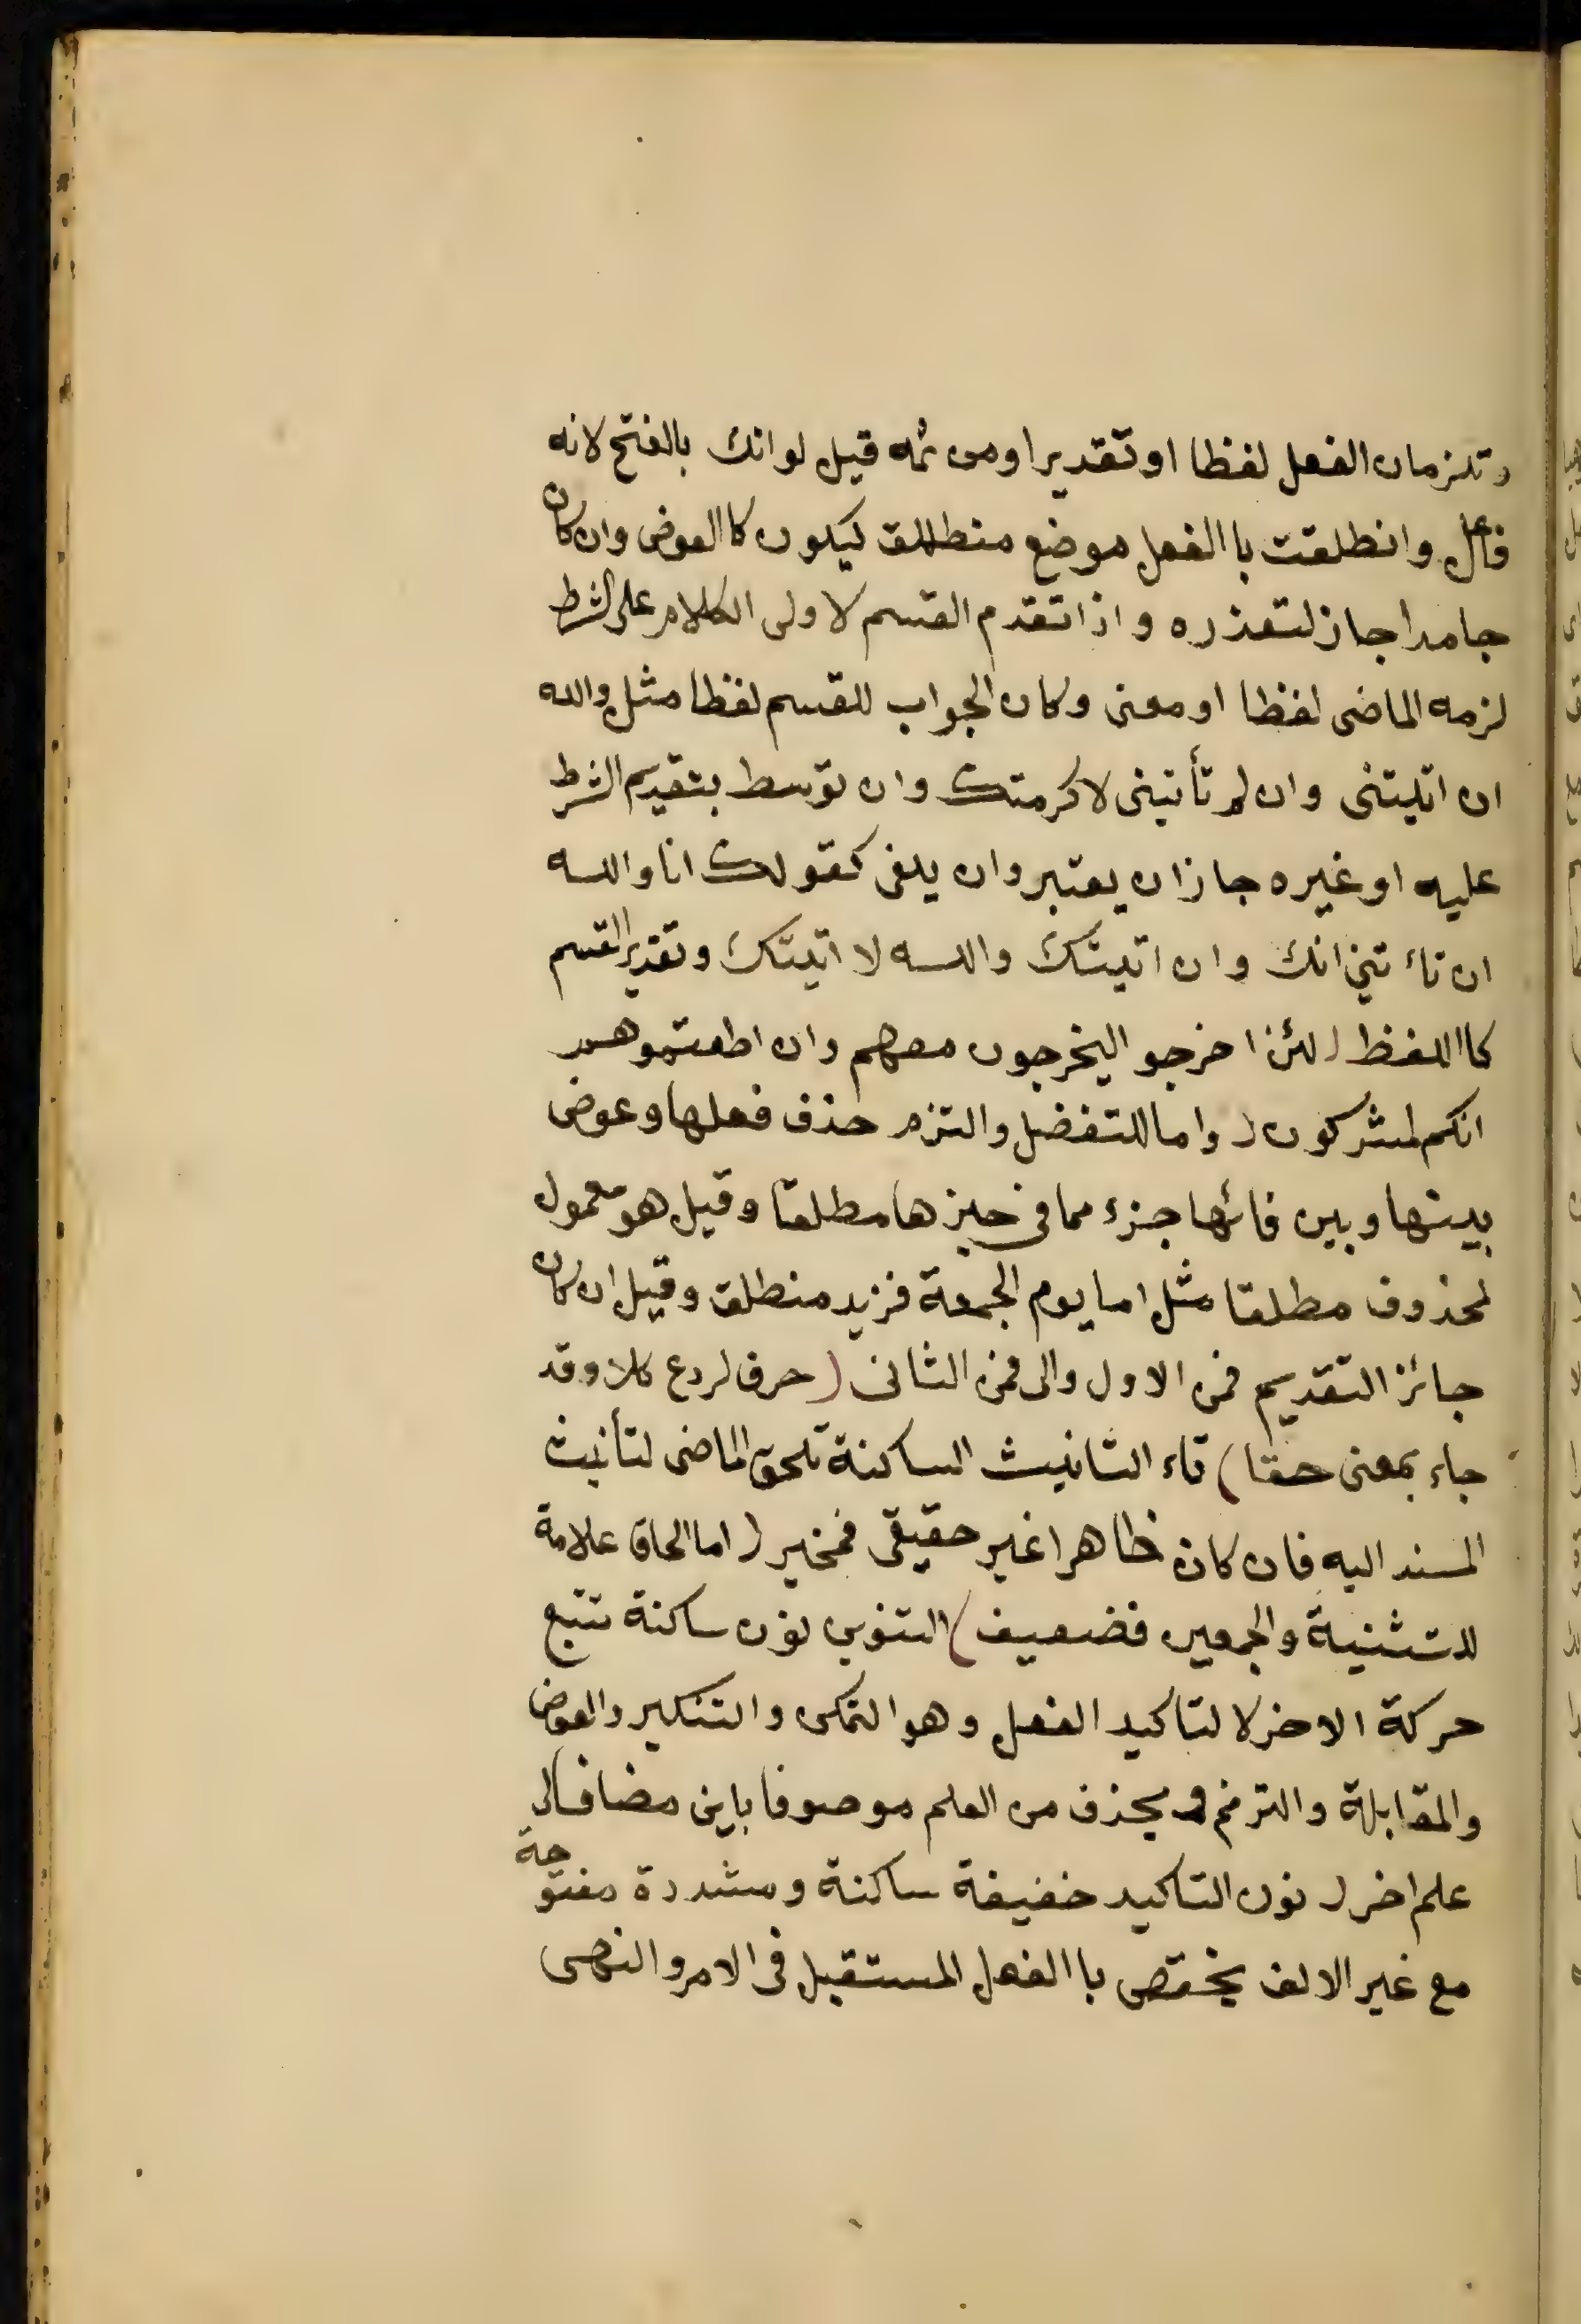 وتلزمان الفعل لفظا او تقديرا ومن ثمه قيل لو انك بالفتح لانه
فاعل وانطلقت با الفعل موضع منطلق ليكون كا العوض وان كان
جامدا جاز لتعذره واذا تقدم القسم لا ولى الكلام على الشرط
لزمه الماضى لفظا او معنى وكان الجواب للقسم لفظا مثل والله
ان اتيتنى وان لم تأتينى لاكرمتك وان توسط بتقديم الشرط
عليه او غيره جاز ان يعتبر وان يلغى كقولك انا والله
ان تاء تنى اتك وان اتيتك والله لا اتيتك وتقدير القسم
كا اللفظ لئن اخرجو اليخرجون معهم وان اطعتموهم
انكم لمشركون واما للتفضل والتزم حذف فعلها وعوض
بينها وبين فائها جزء مما فى حيزها مطلقا وقيل هو معمول
لمحذوف مطلقا مثل اما يوم الجمعة فزيد منطلق وقيل ان كان
جائز التقديم فمن الاول والى فمن الثانى (حرف لردع كلا وقد
جاء بمعنى حقا) تاء التانيث الساكنة تلحق الماضى لتأنيث
المسند اليه فان كان ظاهرا غير حقيقى فمخير (اما الحاق علامة
للتثنية والجمعين فضعيف) التنوين نون ساكنة تتبع
حركة الاخر لا لتاكيد الفعل وهو التمكن والتنكير والعوض
والمقابلة والترنم ويحذف من العلم موصوفا باين مضافا الى
علم اخر نون التاكيد خفيفة ساكنة ومشددة مفتوحة
مع غير الالف يختص با الفعل المستقبل فى الامر والنهى